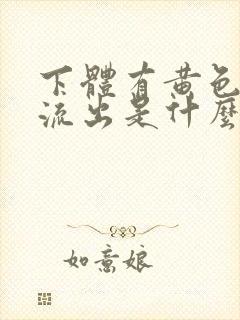 下體有黃色
流出是什麼
如意娘